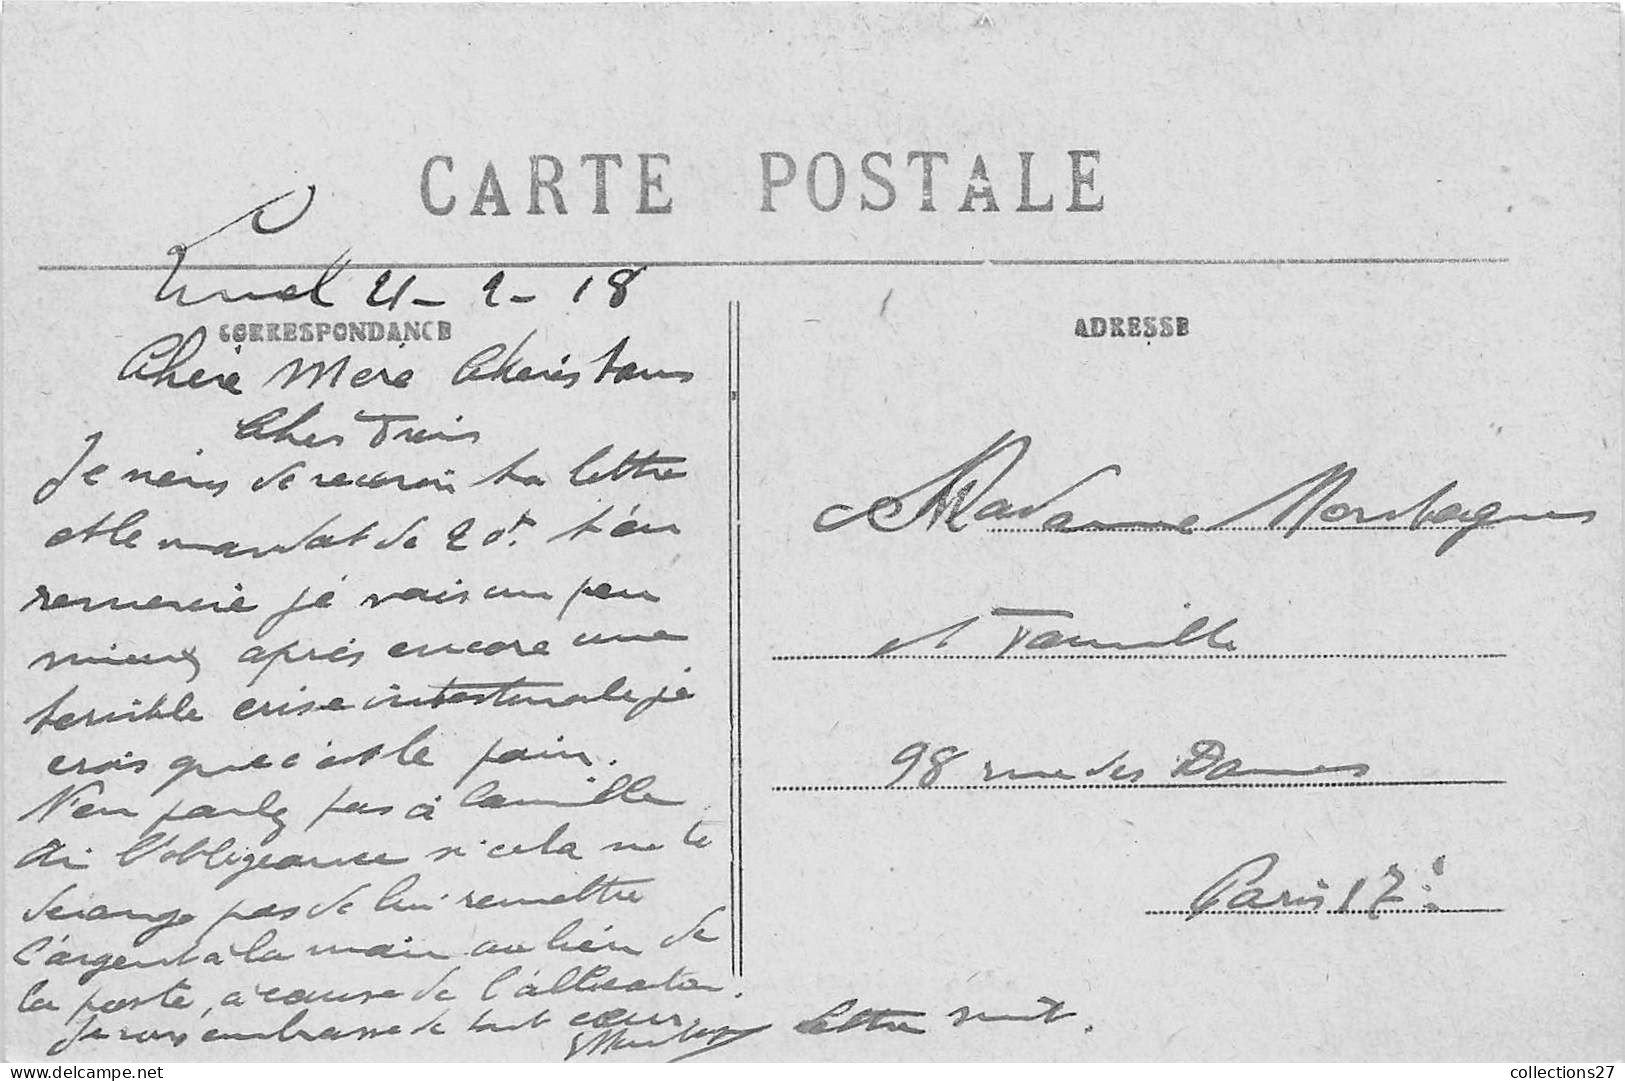 CARTE POSTALE
21-2-18
CORRESPONDANCE
Chère Mère Chéris tous
Chers Trois
Je viens de recevoir ta lettre
et le mandat de 20f. t'en
remercie je vais un peu
mieux après encore une
terrible crise intestinale je
crois que c'est le pain.
N'en parlez pas à Camille
Ai l'obligeance si cela ne te
dérange pas de lui remettre
l'argent à la main au lieu de
la poste, à cause de l'allocation.
Je vous embrasse de tout cœur
lettre suit.
ADRESSE
Madame Montagnes
et Famille
98 rue des Dames
Paris 17e
collections27